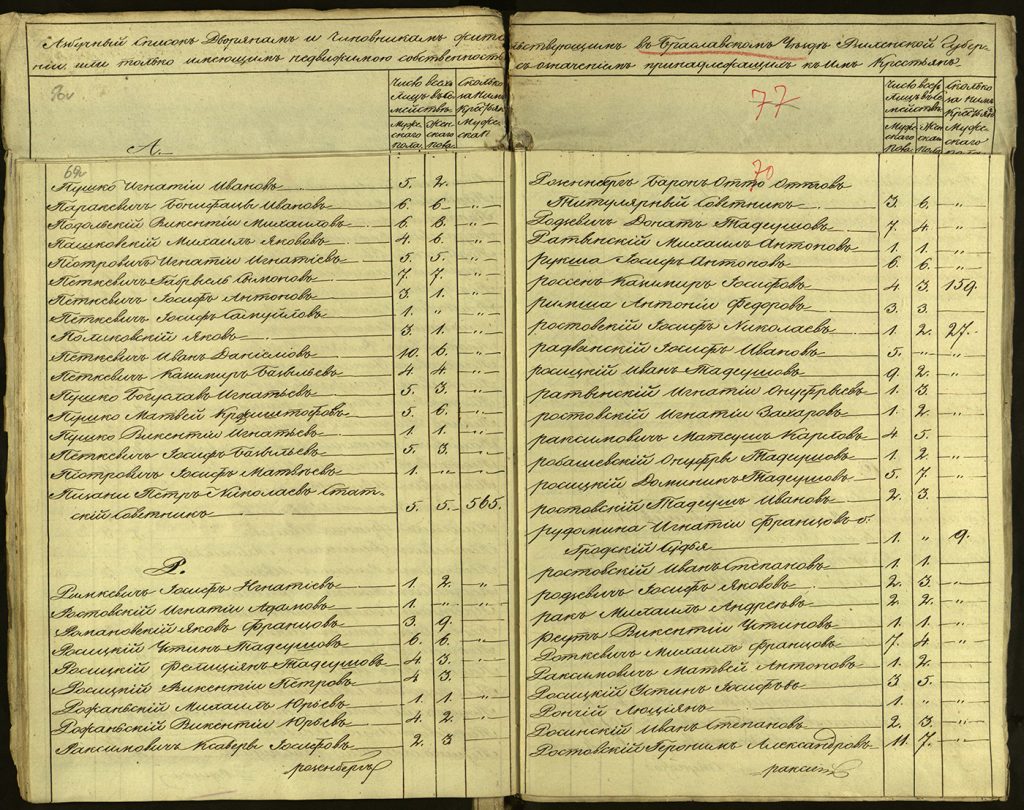 Азбучный Списокъ Дворянамъ и Чиновникамъ жите льствующимъ въ Браславскомъ Уѣздѣ Виленской Губер-
ніи или только имеющимъ недвижимою собственность съ означеніемъ принадлежащихъ къ нимъ Крестьянъ
Число всехъ Лицъ въ семействѣ
Мужескаго пола.
Женскаго пола.
Сколько за ними Крестьянъ Мужескаго пола
А.
69
Пушко Игнатій Ивановъ 5. 2. "
Паракевичъ Бонифацъ Ивановъ 6. 6. "
Подольскій Викентій Михаиловъ 6. 6. "
Пашковскій Михаилъ Якововъ 4. 6. "
Піотровичъ Игнатій Игнатіевъ 5. 5. "
Петкевичъ Габрыель Сымоновъ 7. 7. "
Петкевичъ Іосифъ Антоновъ 3. 1. "
Петкевичъ Іосифъ Самуйловъ 1. " "
Поликовскій Яковъ 3. 1. "
Петкевичъ Иванъ Даніеловъ 10. 6. "
Петкевичъ Казимиръ 4 4 "
Пушко Богуславъ Игнатьевъ 5. 3. "
Пушко Матвей Крыштофовъ 5. 6. "
Пушко Викентій Игнатьевъ 1. 1. "
Петкевичъ Іосифъ 5. 3. "
Піотровичъ Іосифъ Матвѣевъ 1. " "
Пизани Петръ Николаевъ Стат-
скій Советникъ 5. 5. 565.
Р.
Ринкевичъ Іосифъ Игнатіевъ 1. 2. "
Ростовскій Игнатій Адамовъ 1. " "
Романовскій Яковъ Францовъ 3. 9. "
Росицкій Устинъ Тадеушовъ 6. 6. "
Росицкій Фелиціянъ Тадеушовъ 4 3. "
Росицкій Викентій Петровъ 4 3. "
Рожанскій Михаилъ Юрьевъ 1. 1. "
Рожанскій Викентій Юрьевъ 4. 2. "
Раксимовичъ Ксаверы Іосифовъ 2. 3
розенбергъ
77
Число всехъ Лицъ въ семействѣ
Мужескаго пола.
Женскаго пола.
Сколько за ними Крестьянъ Мужескаго
70
Розенбергъ Баронъ Отто Оттовъ
Титулярный Советникъ 3 6. "
Родзевичъ Донатъ Тадеушовъ 7. 4. "
Ратынскій Михаилъ Антоновъ 1. 1. "
рукша Іосифъ Антоновъ 6. 6. "
россенъ Казимиръ Іосифовъ 4. 3. 159.
римша Антоній Федоровъ 3. 3.
ростовскій Іосифъ Николаевъ 1. 2. 27.
радванскій Іосифъ Ивановъ 5. " "
росицкій Иванъ Тадеушовъ 9. 2. "
ратынскій Игнатій Онуфрыевъ 1. 3. "
ростовскій Игнатій Захаровъ 1. 2. "
раксимовичъ Матеушъ Карловъ 4 5. "
робашевскій Онуфры Тадеушовъ 1. 2. "
росицкій Доминикъ Тадеушовъ 5. 7. "
ростовскій Тадеушъ Ивановъ 2. 3. "
рудомина Игнатій Францовъ б.
Гродскій Судья 1. " 9.
ростовскій Иванъ Степановъ 1. 1. "
родзевичъ Іосифъ Якововъ 2. 3. "
ракъ Михаилъ Андреевъ 2 2. "
Реутъ Викентій Устиновъ 1. 1. "
Роткевичъ Михаилъ Францовъ 7. 4 "
Раксимовичъ Матвей Антоновъ 1. 2. "
Росицкій Устинъ Іосифовъ 3 5. "
Рончій Люціянъ 1. " "
Росинскій Иванъ Степановъ 2. 3. "
Ростовскій Геронимъ Александровъ 11. 7. "